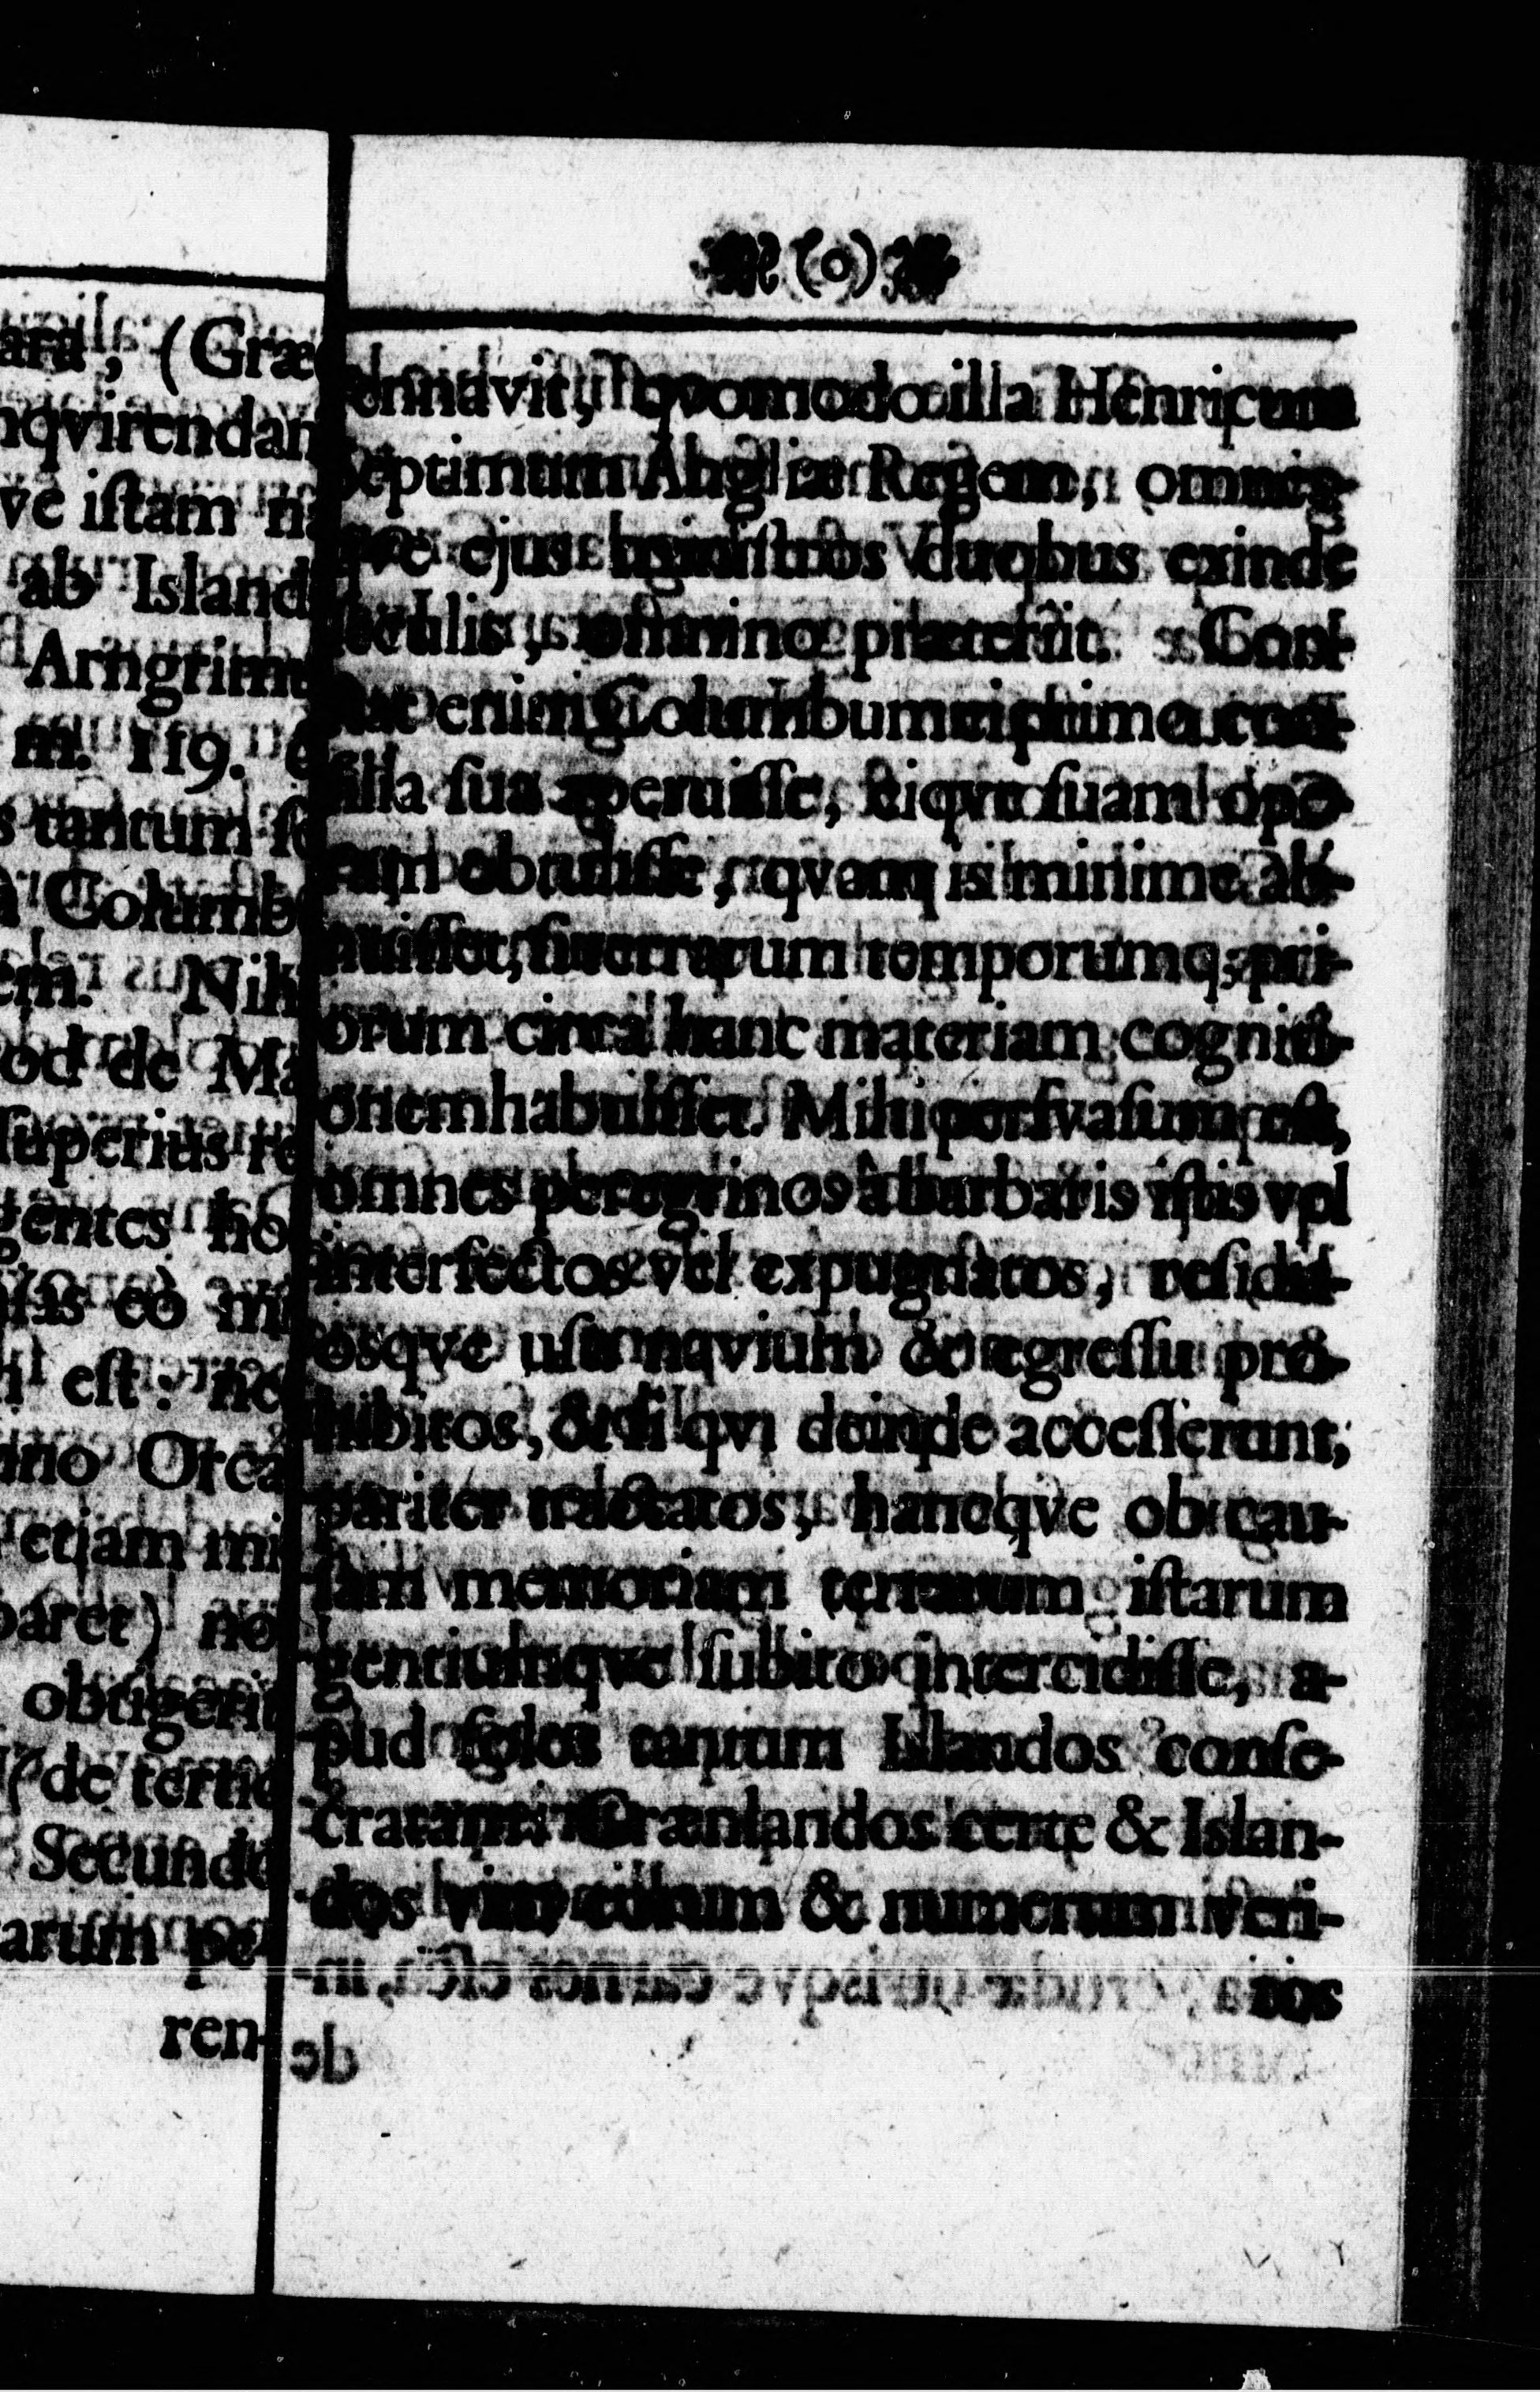 ara, (Græ
nqvirendam
ve iſtam na
ab Island
Arngrimu
m. 119.
s tantum ſe
à Columbo
em. Nihi
od de Ma
ſuperius re
gentes ho
eò mi
eſt: ne
Orca
etiam mi
paret) no
obtigerit
(de tertio
Secundo
arum pe-
ren-
(o)
ennavit, qvomodo illa Henricum
Septimum Angliæ Regem, omneſ-
qve ejus miniſtros duobus exinde
ſeculis, omnino præteriit. Conſ-
tat enim Columbum ei primo con-
ſilia ſua aperuiſſe, eiqve ſuam ope-
ram obtuliſſe, qvam is minime ab-
nuiſſet, ſi terrarum temporumq; pri-
orum circa hanc materiam cogniti-
onem habuiſſet. Mihi perſvaſum eſt,
omnes peregrinos à barbaris iſtis vel
interfectos vel expugnatos, reſidu-
osqve uſu navium & egreſſu pro-
hibitos, & ſi qvi deinde acceſſerunt,
pariter tractatos, hancqve ob cau-
ſam memoriam terrarum iſtarum
gentiumqve ſubito intercidiſſe, a-
pud ſolos tantum Islandos conſe-
cratam. Grænlandos certe & Islan-
dos vim illorum & numerum veri-
tos